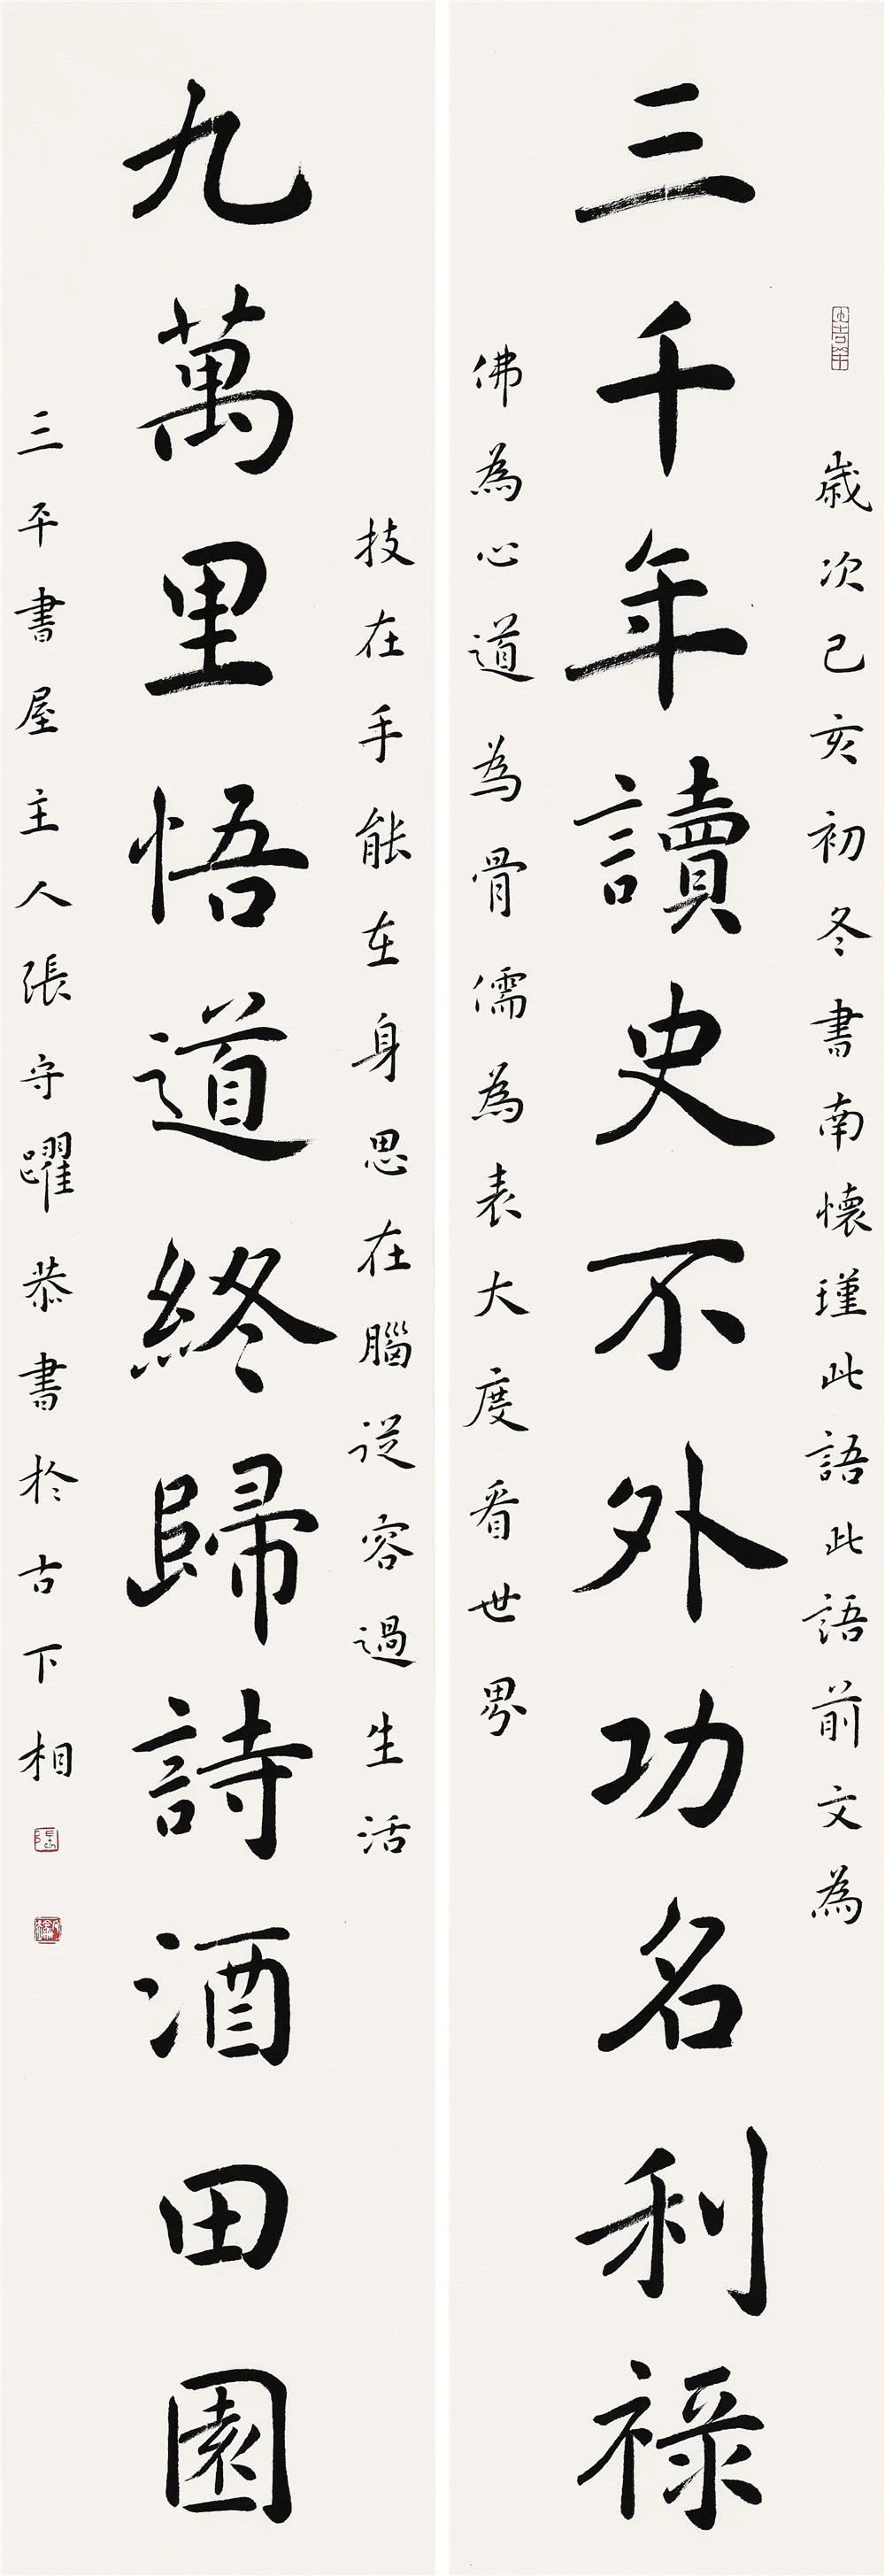 歲次己亥初冬書南懷瑾此語此語前文為
三千年讀史不外功名利祿
佛為心道為骨儒為表大度看世界
技在手能在身思在腦從容過生活
九萬里悟道終歸詩酒田園
三平書屋主人張守躍恭書於古下相